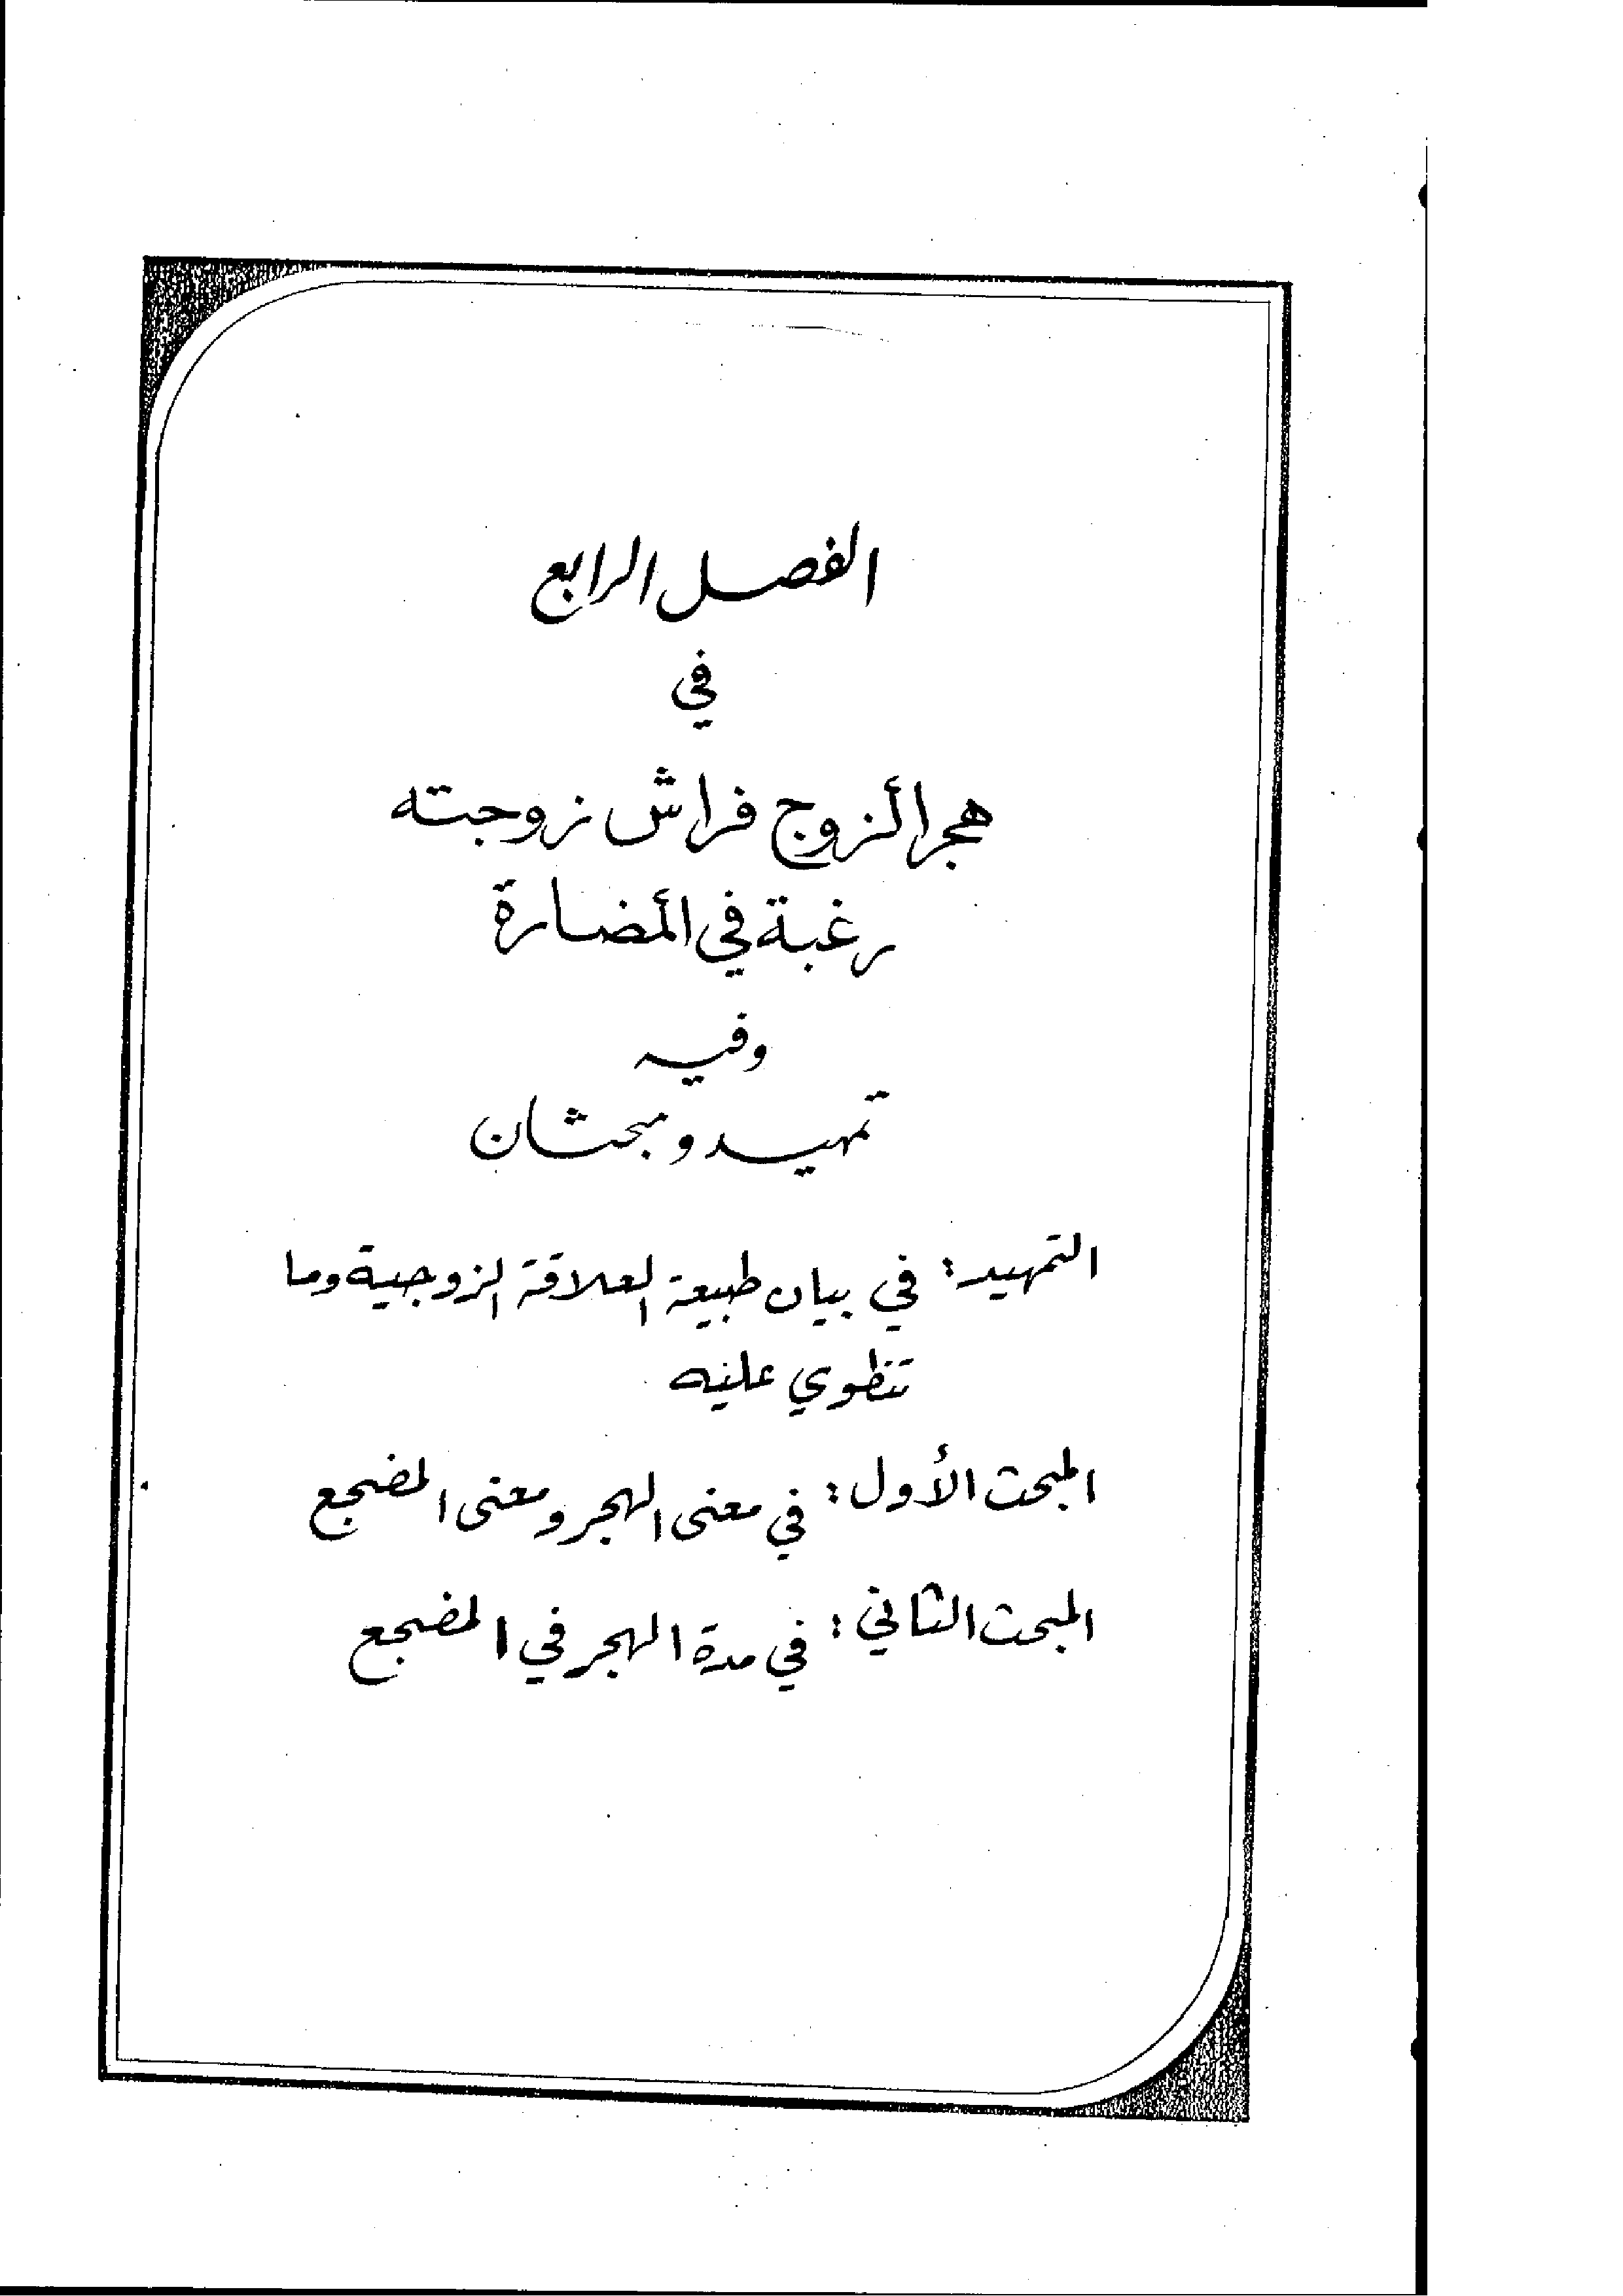 الفصل الرابع
في
هجر الزوج فراش زوجته
رغبة في المضارة
وفيه
تمهيد ومبحثان
التمهيد: في بيان طبيعة العلاقة الزوجية وما
تنطوي عليه
المبحث الأول: في معنى الهجر ومعنى المضجع
المبحث الثاني: في مدة الهجر في المضجع